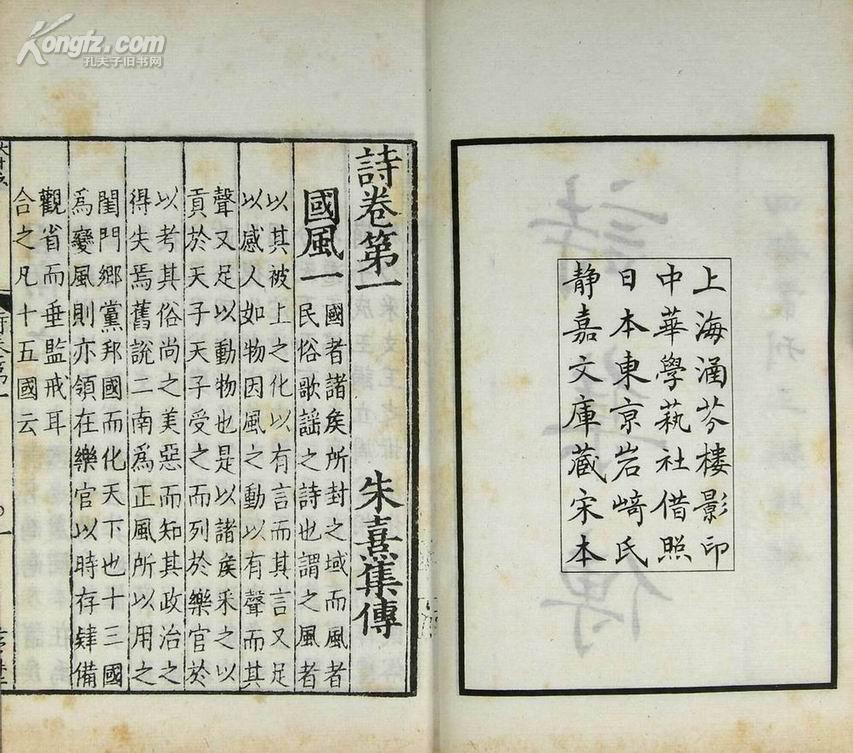 Kongfz.com
孔夫子旧书网
上海涵芬樓影印
中華學藝社借照
日本東京岩﨑氏
静嘉文庫藏宋本
詩卷第一 朱熹集傳
國風一
國者諸矦所封之域而風者
民俗歌謡之詩也謂之風者
以其被上之化以有言而其言又足
以感人如物因風之動以有聲而其
聲又足以動物也是以諸矦采之以
貢於天子天子受之而列於樂官於
以考其俗尚之美惡而知其政治之
得失焉舊説二南爲正風所以用之
閨門鄉黨邦國而化天下也十三國
爲變風則亦領在樂官以時存肄備
觀省而垂監戒耳
合之凡十五國云